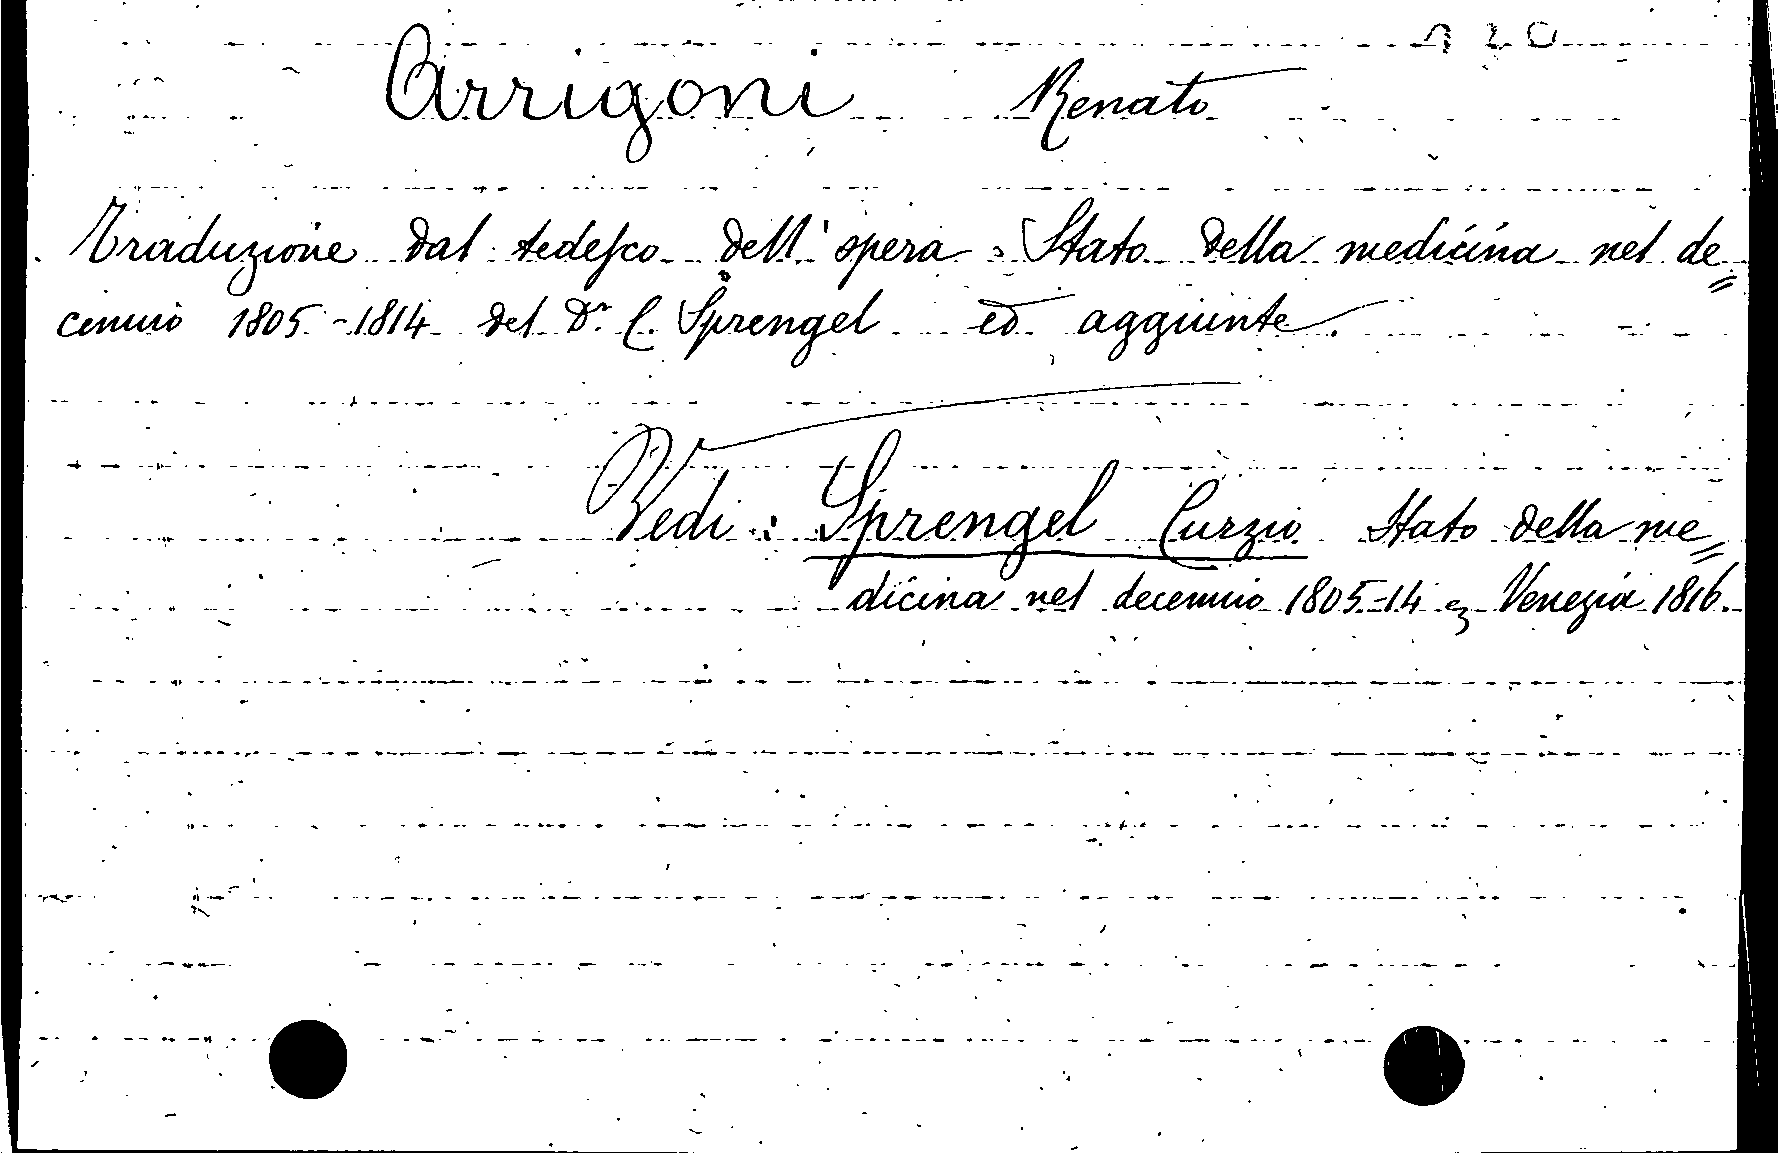 Arrigoni Renato
Traduzione dal tedesco dell'opera: Stato della medicina nel de=
cennio 1805-1814 del Dr. C. Sprengel ed aggiunte.
Vedi: Sprengel Curzio Stato della me=
dicina nel decennio 1805-14 Venezia 1816.